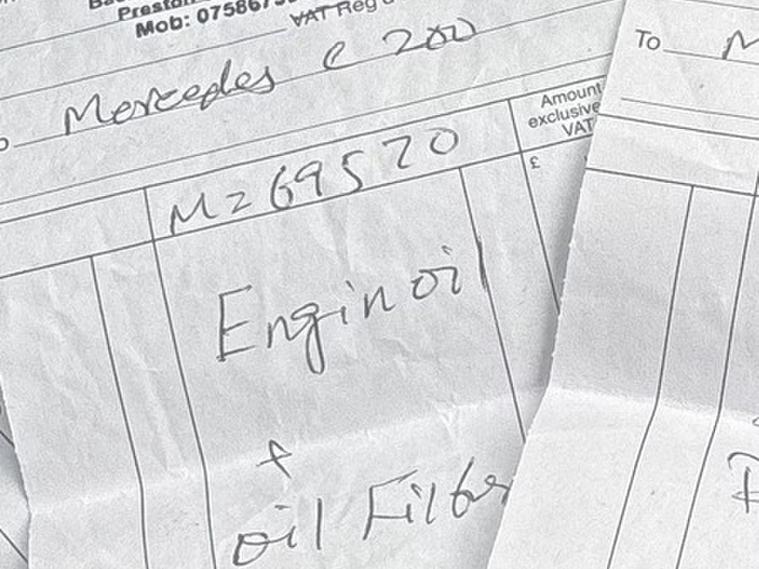 Preston
Mob: 07586
VAT Reg
Mercedes C 200
To M
Amount
exclusive
VAT
M = 69570
£
Engin oil
+
oil Filter